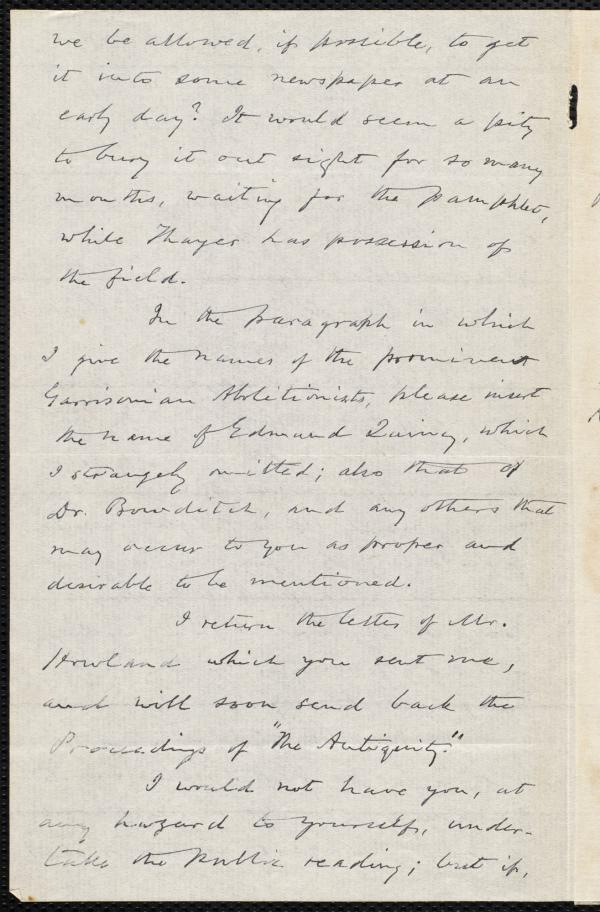 we be allowed, if possible, to get
it into some newspaper at an
early day? It would seem a pity
to bury it out sight for so many
months, waiting for the pamphlet,
while Thayer has possession of
the field.
In the paragraph in which
I give the names of the prominent
Garrisonian Abolitionists, please insert
the name of Edmund Quincy, which
I strangely omitted; also that of
Dr. Bowditch, and any others that
may occur to you as proper and
desirable to be mentioned.
I return the letter of Mr.
Howland which you sent me,
and will soon send back the
Proceedings of "The Antiquity."
I would not have you, at
any hazard to yourself, under-
take the public reading; but if,